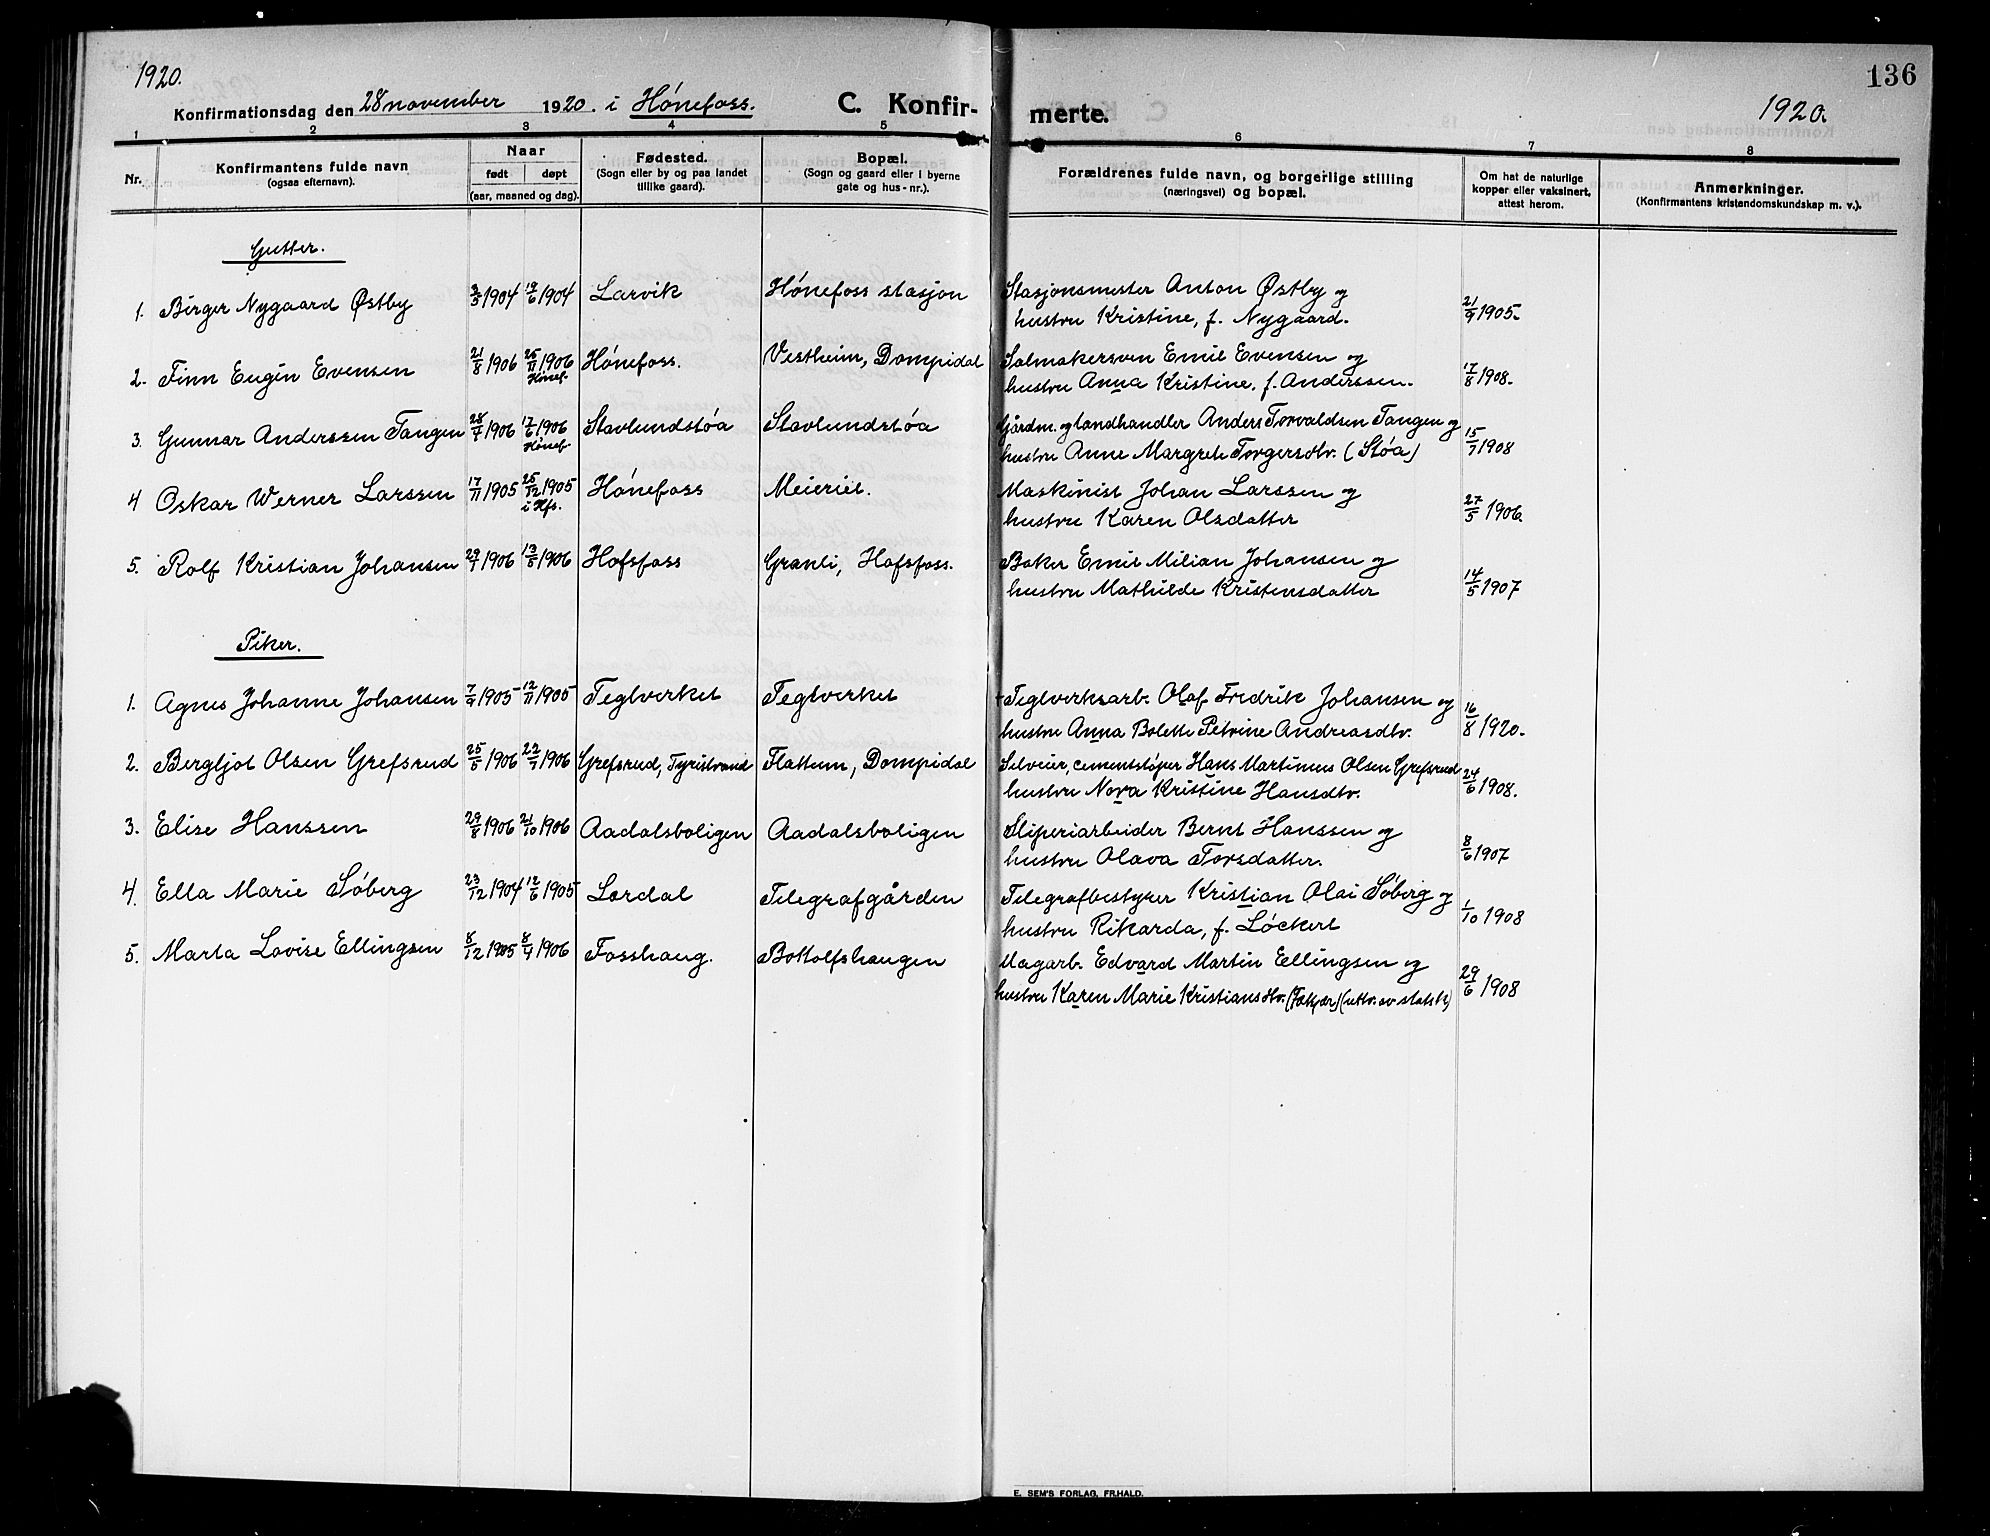 136
1920.
1920.
Konfirmationsdag den 28 november 1920. i Hónefoss.
C. Konfir-
merte.
1 2 3 4 5 6 7 8
Nr.
Konfirmantens fulde navn
(ogsaa efternavn).
Naar
født døpt
(aar, maaned og dag).
Fødested.
(Sogn eller by og paa landet
tillike gaard).
Bopæl.
(Sogn og gaard eller i byerne
gate og hus-nr.).
Forældrenes fulde navn, og borgerlige stilling
(næringsvei) og bopæl.
Om hat de naturlige
kopper eller vaksinert,
attest herom.
Anmerkninger.
(Konfirmantens kristendomskundskap m. v.).
Gutter.
1. Birger Nygaard Østby 3/5 1904 19/6 1904 Larvik Hónefoss stasjon Stasjonsmester Anton Østby og
hustru Kristine, f. Nygaard. 21/9 1905.
2. Finn Eugin Evensen 21/8 1906 25/11 1906 Hónefoss. Vestheim, Dompidal Salmakersven Emil Evensen og
Hónef. hustru Anna Kristine, f. Anderssen. 17/8 1908.
3. Gunnar Anderssen Tangen 28/4 1906 17/6 1906 Stavlundstóa Stavlundstóa Gårdm. og landhandler Anders Torvaldsen Tangen og
Hónef. hustru Anne Margrete Torgersdtr. (Stóa) 15/7 1908
4 Oskar Werner Larssen 17/11 1905 25/12 1905 Hónefoss Meieriet. Maskinist Johan Larssen og
i Hfs. hustru Karen Olsdatter 27/5 1906.
5. Rolf Kristian Johansen 29/4 1906 13/5 1906 Hofsfoss Granli, Hofsfoss. Baker Emil Milian Johansen og
hustru Mathilde Kristensdatter 14/5 1907
Piker.
1. Agnes Johanne Johansen 7/9 1905 12/11 1905 Teglverket Teglverket Teglverksarb. Olaf Fredrik Johansen og
hustru Anna Bolette Petrine Andreasdtr. 16/8 1920.
2. Bergljot Olsen Grefsrud 25/5 1906 22/7 1906 Grefsrud, Tyristrand Flattum, Dompidal Selveier, cementstóper Hans Martinius Olsen Grefsrud
hustru Nora Kristine Hansdtr. 24/6 1908.
3. Elise Hanssen 29/8 1906 21/10 1906 Aadalsboligen Aadalsboligen Sliperiarbeider Bernt Hanssen og
hustru Olava Torsdatter. 8/6 1907
4. Ella Marie Sóberg 23/12 1904 12/6 1905 Lardal Telegrafgården Telegrafbestyrer Kristian Olai Sóberg og
hustru Rikarda, f. Lóckert 1/10 1908
5. Marta Lovise Ellingsen 8/12 1905 8/4 1906 Fosshaug. Bottolfshaugen Magarb. Edvard Martin Ellingsen og
hustru Karen Marie Kristiansdtr. (uttr. av statsk) 29/6 1908
E. SEM'S FORLAG, FR.HALD.